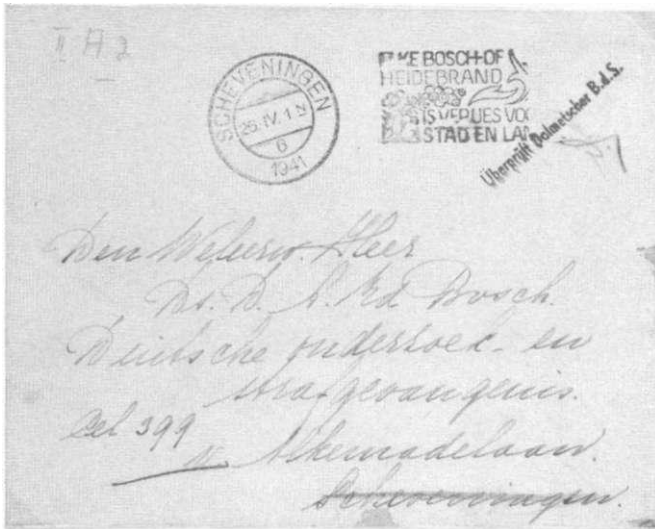 II A 2
SCHEVENINGEN
26.IV.
6
1941
BOSCH-OF
HEIDEBRAND
IS VERLIES VOO
STAD EN LAN
Überprüft Dolmetscher B.d.S.
Den Weleerw. Heer
Ds. D. A. v.d. Bosch.
Deutsche onderzoek- en
strafgevangenis.
Cel 399
v. Alkemadelaan.
Scheveningen.